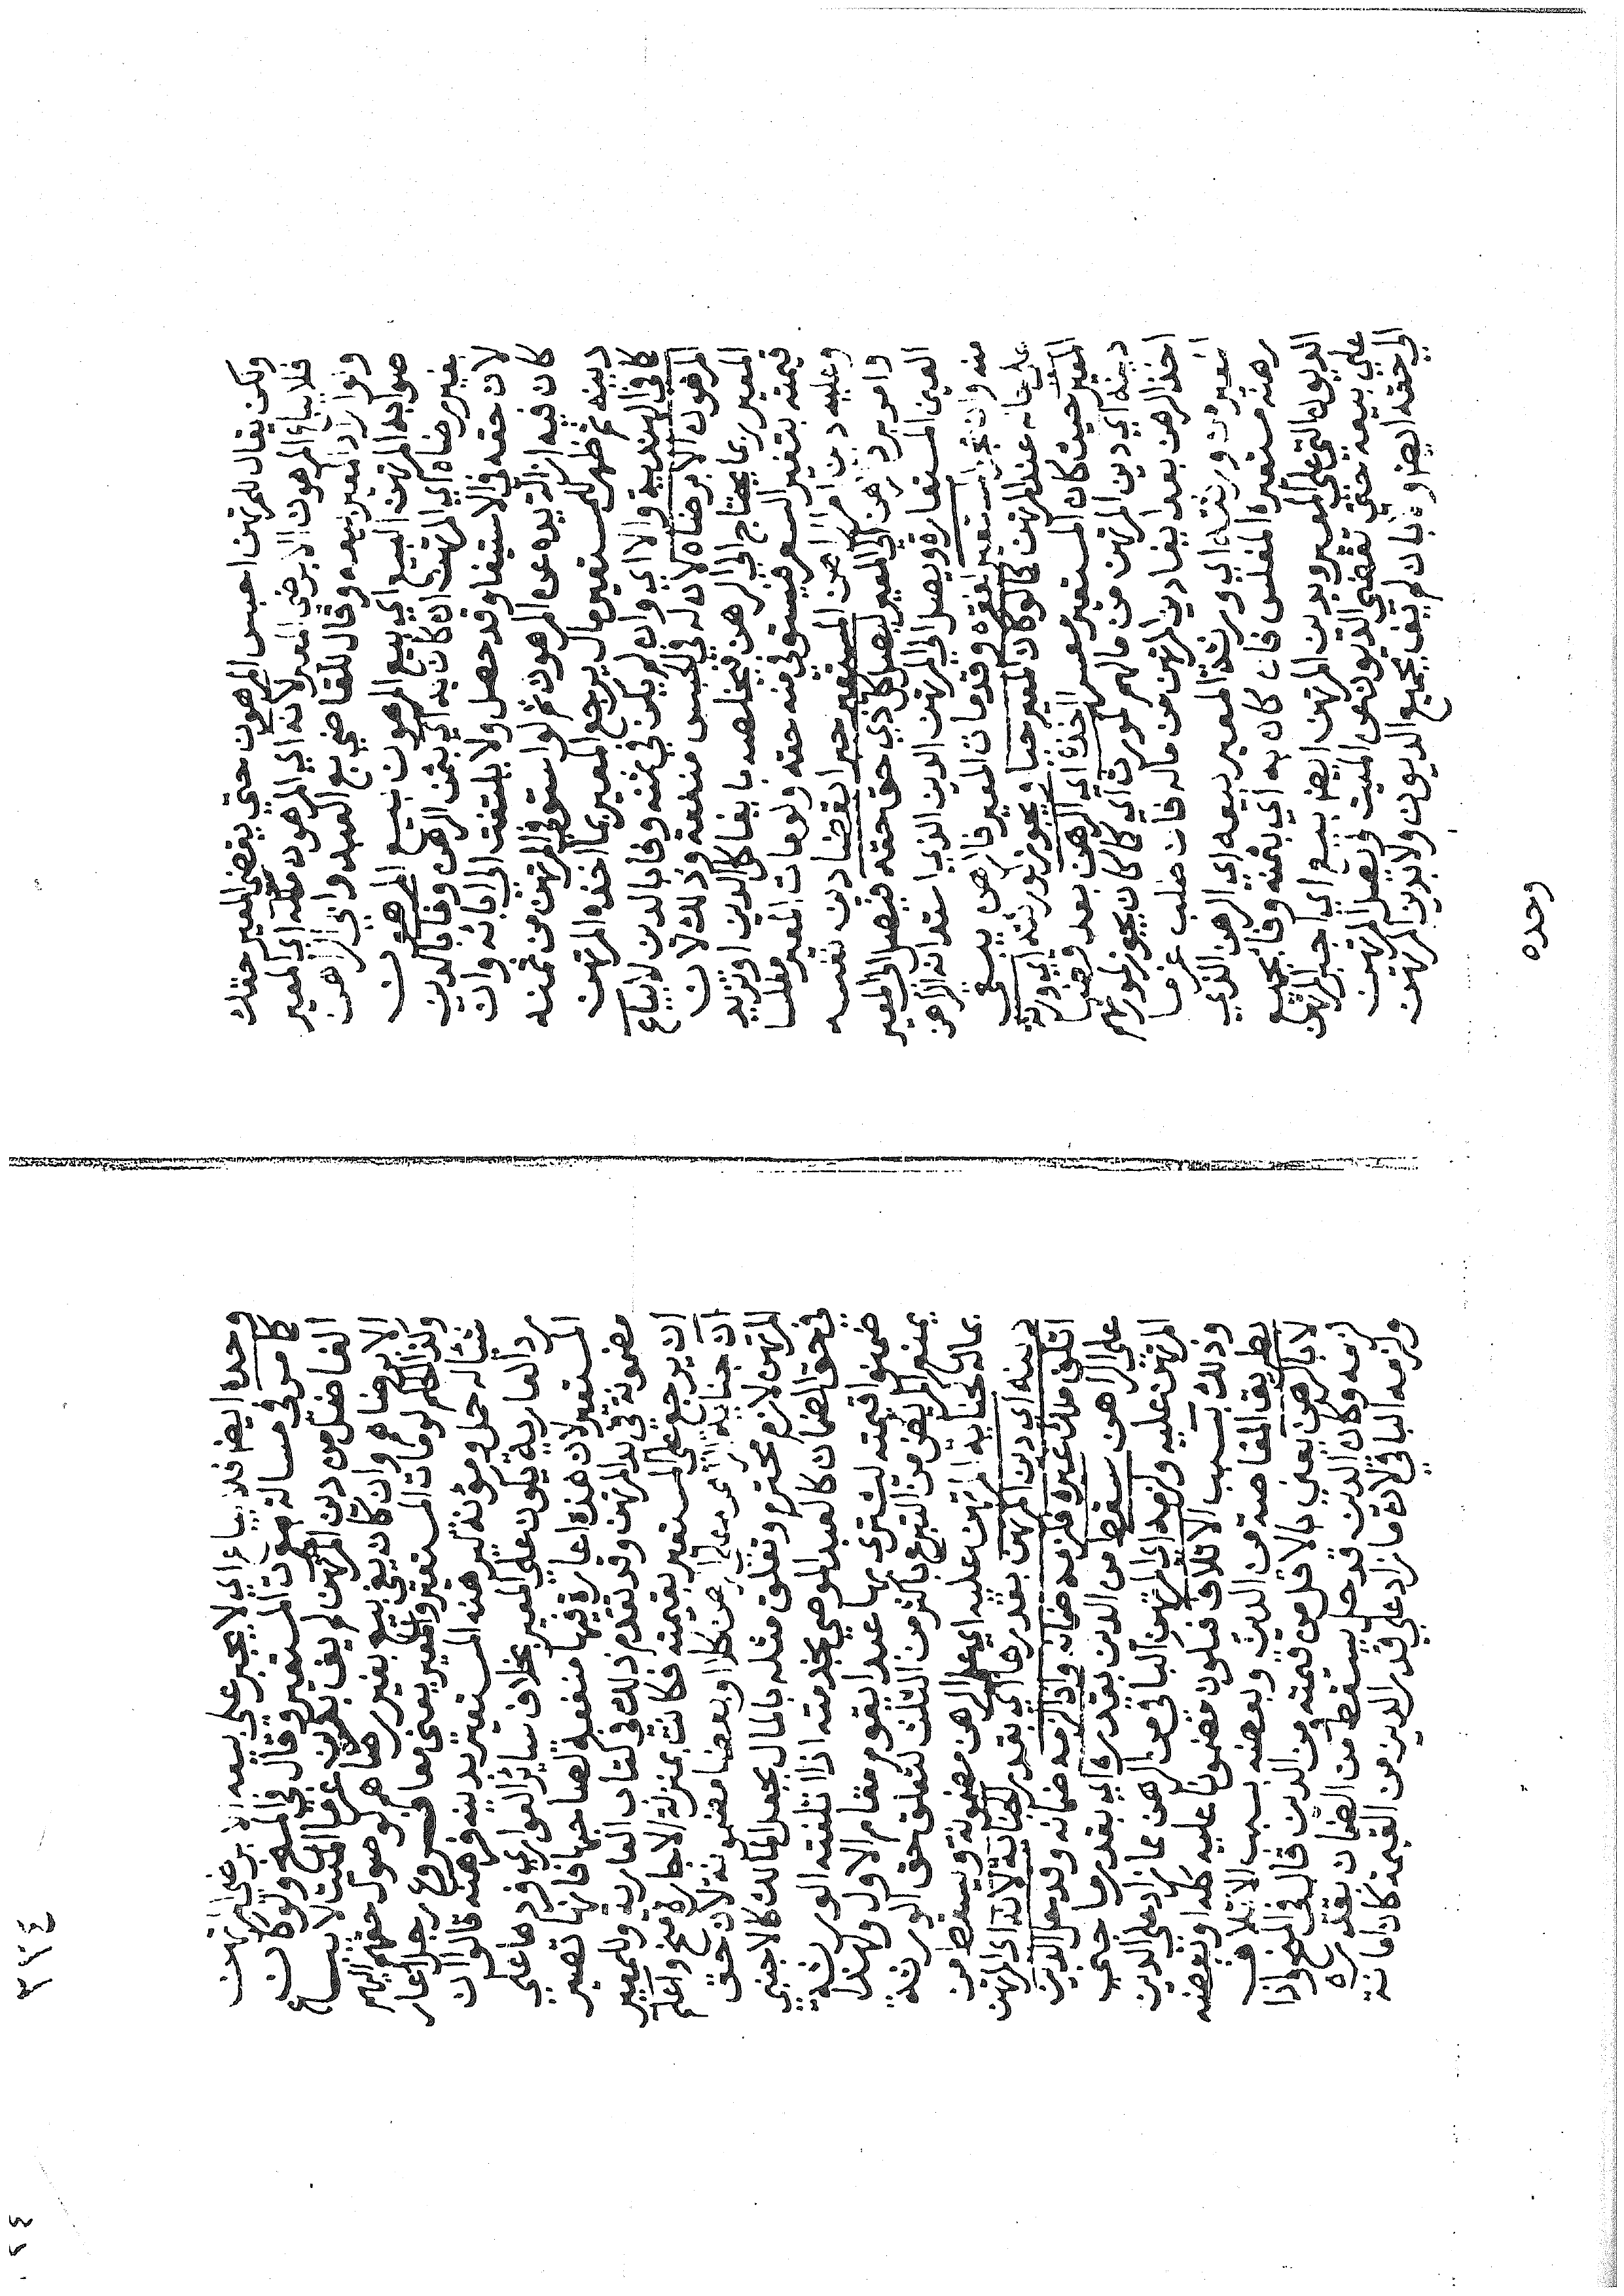 ولكن يقال للمرتهن احبس المرهون حتي يقضي المعير حقك
فلا يباع المرهون الا برضي المعير لانه اي المرهون ملكه اي المعير
ولو اراد المعير بيعه وقال للقاضي بع العبد وابي الراهن
هو ابه المرتهن البيع اي بيع المرهون بيع المرهون
بغير رضاه اي المرتهن ان كان به اي بثمن الرهن وفا بالدين
لان حقه في الاستيفا وقد حصل ولا يلتفت الي ابائه وان
كان فيه ازالة يده عن المرهون ثم لو استوفي المرتهن من ثمنه
دينه ثم ظهر للمستعير مال يرجع المعير بما اخذه المرتهن
كما في الهندية والا اي وان لم يكن في ثمنه وفا بالدين لا يباع
المرهون الا برضاه لان له في الحبس منفعة وذلك لان
المعير ربما يحتاج الي الرهن فيخلصه بايفا كل الدين او تزيد
قيمته بتغير السعر فيستوفي منه حقه ولو مات المعير مفلسا
وعليه دين امر الراهن المستعير جبرا بقضا دين نفسه
وامر برد الرهن الي المعير ليصل كل ذي حق حقه فيصل الي المعير
العين المستعارة ويصل الي المرتهن الدين الذي استدانه الراهن
منه وان عجز المستعير لفقره وقد مات المعير فالرهن يبقي
علي حاله عند المرتهن كما لو كان المعير حيا ويجوز لورثته اي ورثة
المعير حيث كان المستعير معسرا اخذه اي الرهن بعد قضا
دينه اي دين المرتهن من مالهم لمورث اي كما كان يجوز لمورثهم
اخذ الرهن بعد ايفا دين المرتهن من ماله فان طلب غرما
المعير من ورثته اي ورثة المعير بيعه اي الرهن الذي
رهنه مستعيره المفلس فان كان به اي بثمنه وفا بجميع
الديون التي علي المعير وبدين المرتهن ايضا بيع اي جبر المرتهن
علي بيعه حتي تقضي الديون عن الميت ويصل المرتهن
الي حقه ايضا والا بان لم يف بجميع الديون ولا بدين المرتهن
وحده
وحده ايضا فلا يباع اي لا يجبر علي بيعه الا برضي المرتهن
كما مر في مسالة موت المستعير وقال في المنح ولو كان
الفاضل من دين المرتهن لم يف بدين غرما الميت لا يباع
الا برضاهم وان كان يفي بيع بغير رضاهم لوصول حقهم اليهم
وكذا الحكم لو مات المستعير والمعير يعني معا فروع رجل اعار
شيئا له حمل ومؤنة ليرهنه المستعير بدينه فرهنه قالوا ان
رد العارية يكون علي المعير بخلاف سائر العواري فردها علي
المستعير لان هذه اعارة فيها منفعة لصاحبها فانها تصير
مضمونة في يد المرتهن وقد تقدم ذلك في كتاب العارية وللمعير
ان يرجع علي المستعير بقيمته فكانت بمنزلة الاجارة منح واعلم
ان جناية الراهن علي الرهن كلا او بعضا مضمونة لان حق
المرتهن لازم محترم وتعلق مثله بالمال يجعل المالك كالاجنبي
في حق الضمان كالعبد الموصي بخدمته اذا اتلفته الورثة
ضمنوا قيمته ليشتري بها عبدا يقوم مقام الاول ولهذا
يمنع المريض من التبرع باكثر من الثلث لتعلق حق الورثة
بماله كجناية المرتهن عليه اي علي الرهن مضمونة ويسقط من
دينه اي دين المرتهن بقدرها اي بقدر الجناية لانه اي المرتهن
اتلف ملك غيره فلزمه ضمانه واذا لزمه ضمانه وقد حل الدين
علي الراهن سقط من الدين بقدره اي بقدر ما جني
المرتهن عليه ولزمه اي المرتهن الباقي من الرهن مما زاد علي الدين
وذلك بسبب الاتلاف فيكون مضمونا عليه كله او بعضه
بطريق المقاصة من الدين وبعضه بسبب الاتلاف
لا بالرهن يعني بالاقل من قيمته ومن الدين قال في المنح واذا
لزمه وكان الدين قد حل يسقط من الضمان بقدره
ولزمه الباقي لان ما زاد علي قدر الدين من القيمة كان امانة
٣٢٤